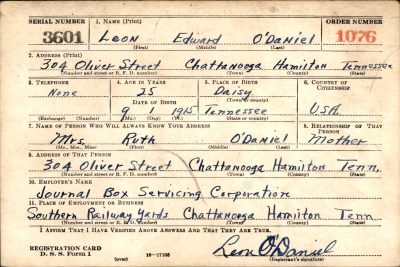 SERIAL NUMBER 1. NAME (Print) ORDER NUMBER
3601 Leon Edward O'Daniel 1076
(First) (Middle) (Last)
2. ADDRESS (Print)
304 Oliver Street Chattanooga Hamilton Tennessee
(Number and street or R. F. D. number) (Town) (County) (State)
3. TELEPHONE 4. AGE IN YEARS 5. PLACE OF BIRTH 6. COUNTRY OF CITIZENSHIP
None 25 Daisy
DATE OF BIRTH (Town or county)
9 1 1915 Tennessee USA
(Exchange) (Number) (Mo.) (Day) (Yr.) (State or country)
7. NAME OF PERSON WHO WILL ALWAYS KNOW YOUR ADDRESS 8. RELATIONSHIP OF THAT PERSON
Mrs. Ruth O'Daniel Mother
(Mr., Mrs., Miss) (First) (Middle) (Last)
9. ADDRESS OF THAT PERSON
304 Oliver Street Chattanooga Hamilton Tenn.
(Number and street or R. F. D. number) (Town) (County) (State)
10. EMPLOYER'S NAME
Journal Box Servicing Corporation
11. PLACE OF EMPLOYMENT OR BUSINESS
Southern Railway Yards Chattanooga Hamilton Tenn
(Number and street or R. F. D. number) (Town) (County) (State)
I AFFIRM THAT I HAVE VERIFIED ABOVE ANSWERS AND THAT THEY ARE TRUE.
REGISTRATION CARD
D. S. S. Form 1 (over) 16-17105 Leon O'Daniel